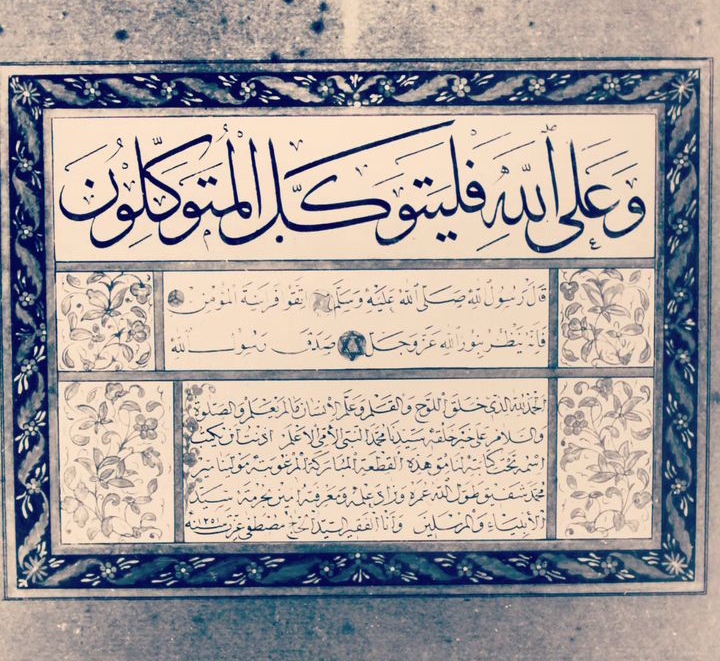 وَعَلَى اللّٰهِ فَلْيَتَوَكَّلِ الْمُتَوَكِّلُونَ
قال رسول الله صلى الله عليه وسلم اتقو المؤمن
فانه ينظر بنور الله عز وجل صدق رسول الله
الحمد لله الذي خلق اللوح والقلم وعلم الانسان ما لم يعلم والصلوة
والسلام على خير خلقه سيدنا محمد النبي الامي الاعلم اذنت ان يكتب
اسمه تحت كتابة هذه القطعة المباركة المرغوبة مولينا
محمد شفيق طول الله عمره وزاد علمه ومعرفته امين بحرمة سيد
الانبياء والمرسلين وانا الفقير السيد الحاج مصطفى عزت سنه ١٢٥١